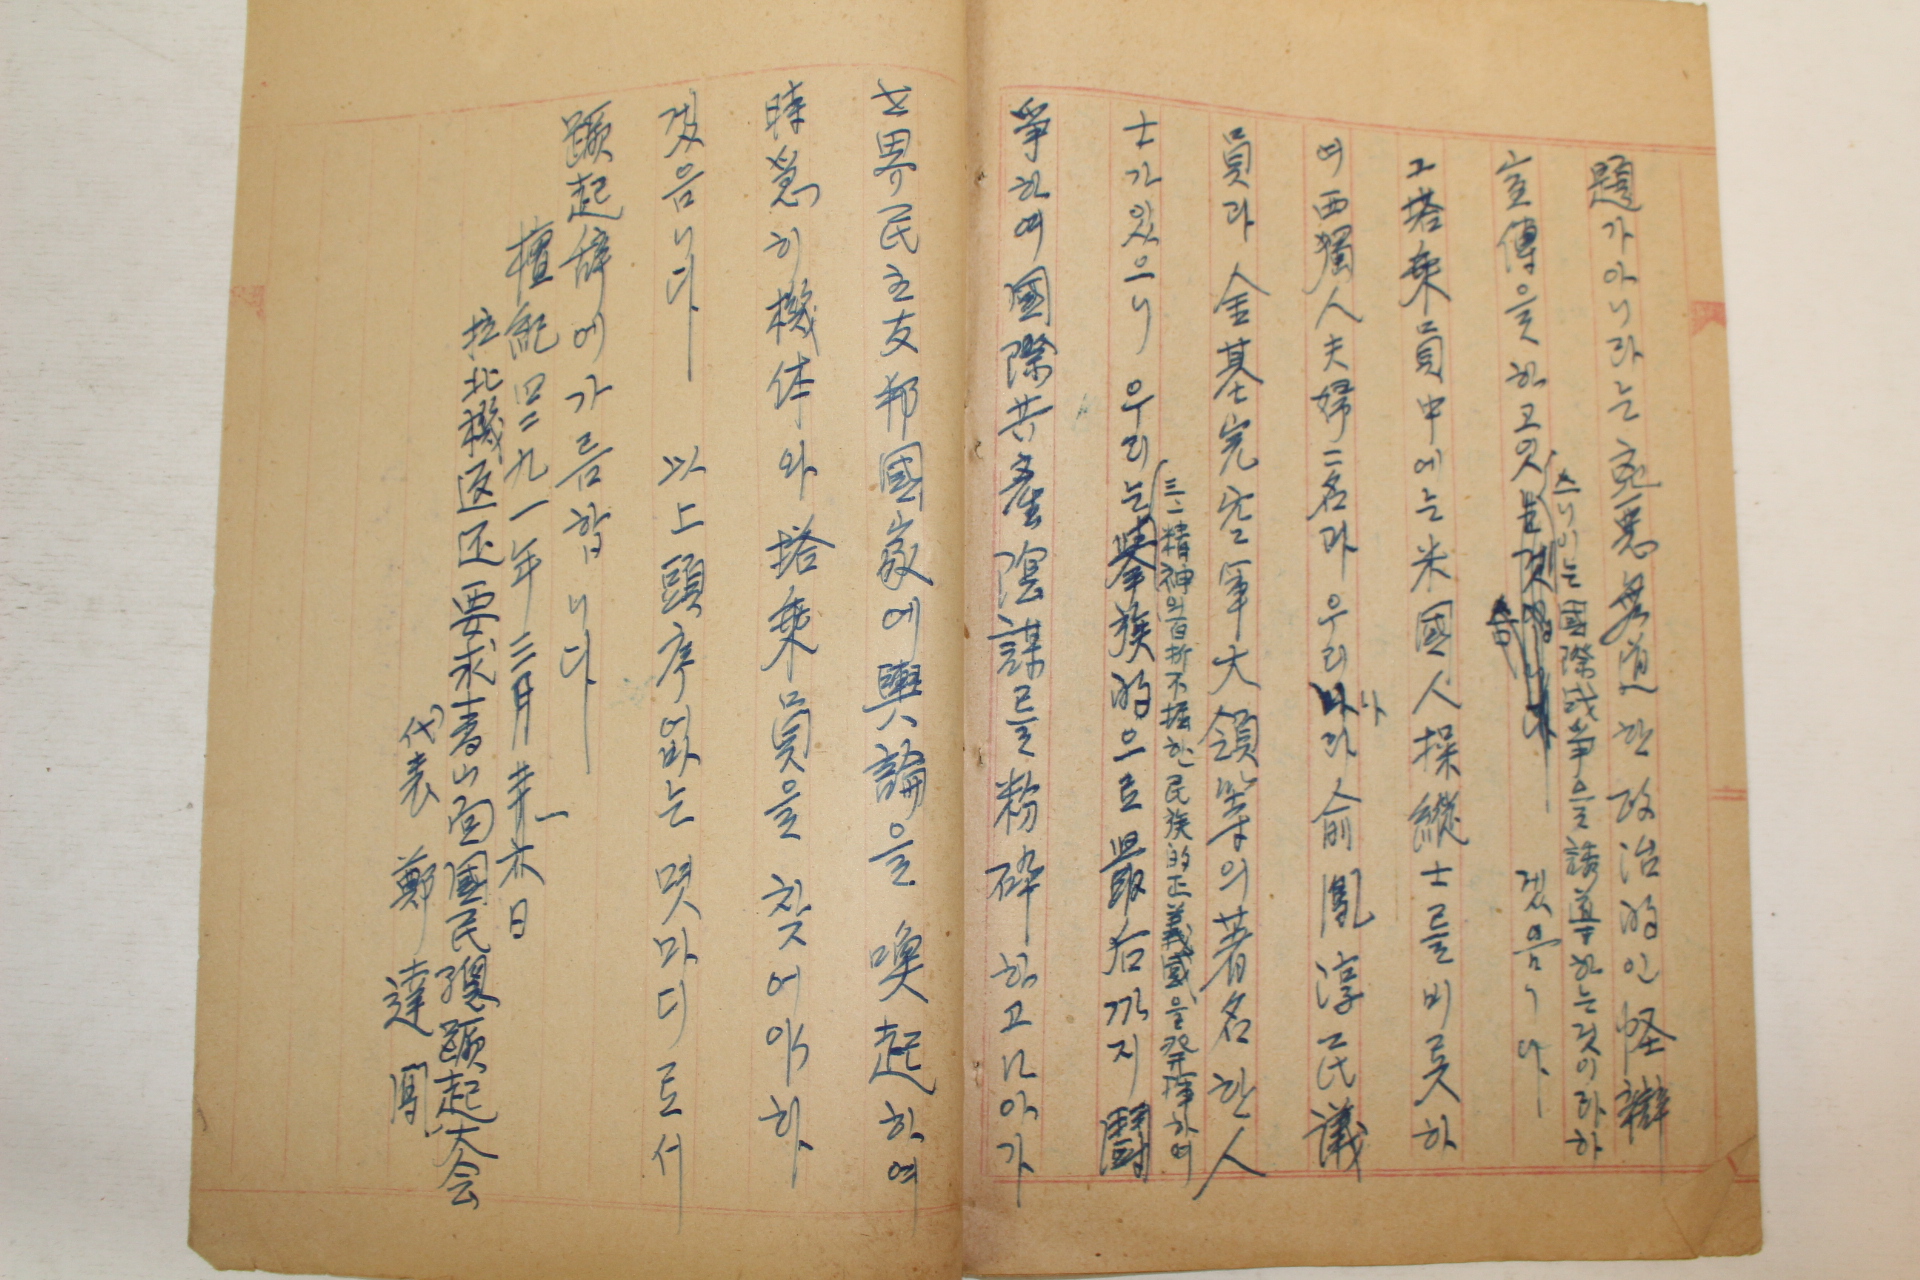 題가아니라는 兇惡無道한政治的인怪辯
宣傳을하고잇
스니이는國際戰爭을誘導하는것이라하
겠음니다
그塔乘員中에는米國人操縱士를비롯하
여西獨人夫婦二名과우리나라人兪鳳淳民議
員과 金基完空軍大領等의著名한人
士가있으니 우리는擧族的으로最后까지鬪
三一精神의百折不掘한民族的正義感을發揮하여
爭하여國際共産陰謀를粉碎하고나아가
世界民主友邦國家에輿論을喚起하여
時急히機体와塔乘員을찾어야하
겠음니다 以上頭序없는몃마디로서
蹶起辞에가름합니다
檀紀四二九一年三月 六日
拉北機返還要求青山面國民總蹶起大会
代表 鄭達鳳